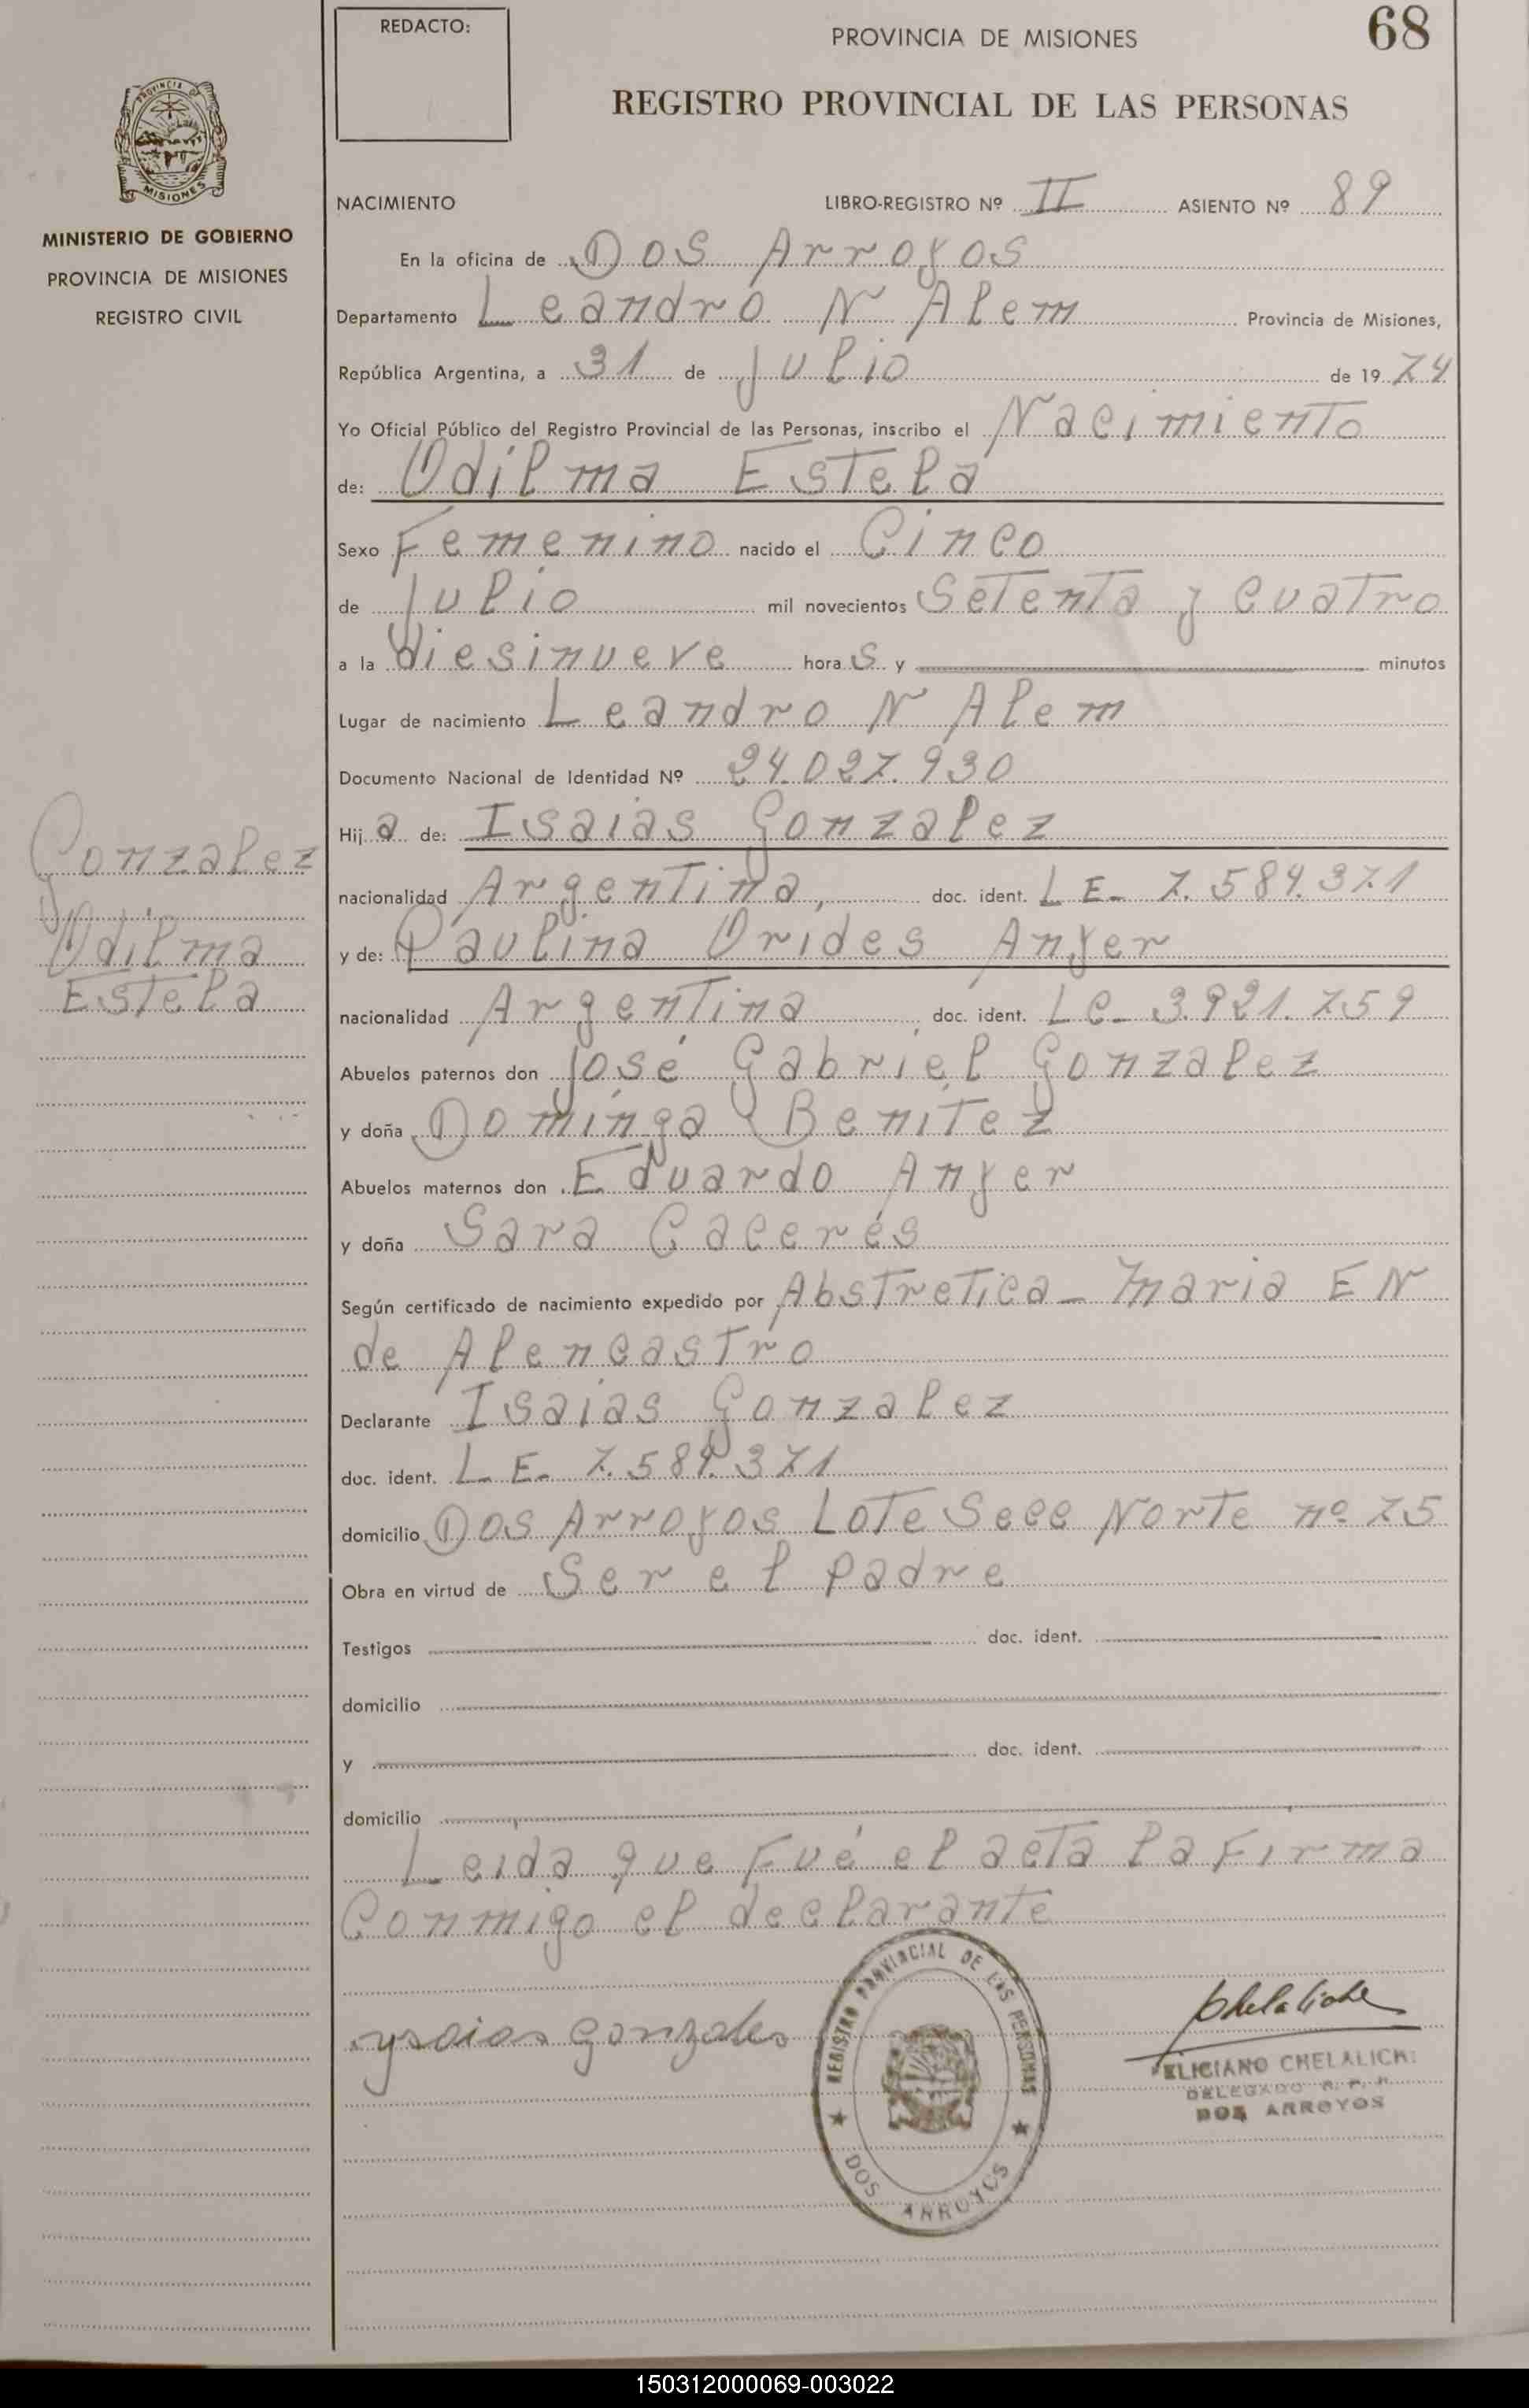 68
REDACTO:
PROVINCIA DE MISIONES
REGISTRO PROVINCIAL DE LAS PERSONAS
PROVINCIA
MISIONES
MINISTERIO DE GOBIERNO
PROVINCIA DE MISIONES
REGISTRO CIVIL
NACIMIENTO LIBRO-REGISTRO Nº II ASIENTO Nº 89
En la oficina de Dos Arroyos
Departamento Leandro N Alem Provincia de Misiones,
República Argentina, a 31 de Julio de 19 74
Yo Oficial Público del Registro Provincial de las Personas, inscribo el Nacimiento
de: Odilma Estela
Sexo Femenino nacido el Cinco
de Julio mil novecientos Setenta y cuatro
a la diesinueve hora s y minutos
Lugar de nacimiento Leandro N Alem
Documento Nacional de Identidad Nº 24.027.930
Hij a de: Isaias Gonzalez
nacionalidad Argentina, doc. ident. L E- 7.584.371
y de: Paulina Orides Anyer
nacionalidad Argentina doc. ident. LC- 3.921.759
Abuelos paternos don José Gabriel Gonzalez
y doña Dominga Benítez
Abuelos maternos don Eduardo Anyer
y doña Sara Caceres
Según certificado de nacimiento expedido por Abstretica- Maria E N
de Alencastro
Declarante Isaias Gonzalez
doc. ident. L E- 7.584.371
domicilio Dos Arroyos Lote Secc Norte nº 75
Obra en virtud de Ser el padre
Testigos doc. ident.
domicilio
y doc. ident.
domicilio
Leida que Fué el acta la Firma
Conmigo el declarante
Gonzalez
Odilma
Estela
ysaias gonzales
REGISTRO PROVINCIAL DE LAS PERSONAS
DOS ARROYOS
Chelaliche
ELICIANO CHELALICHE
DELEGADO R. P. P.
DOS ARROYOS
150312000069-003022